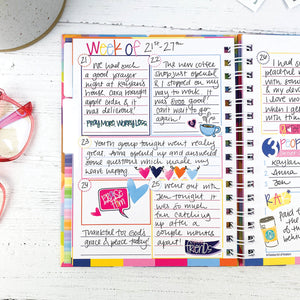 Week of 21st-27th
21
We had such
a good prayer
night at Kaitlyn's
house. Cara brought
apple cider & it
was delicious!
PRAY MORE, WORRY LESS
22
The new coffee
shop just opened
& I stopped on my
way to work. It
was sooo good!
can't wait to go
again!
23
Youth group tonight went really
great. Anna opened up and answered
some questions which made my
heart happy.
24
praise
Him
Thankful to God's
grace & peace today!
25
went out with
Jen tonight. It
was so much
fun catching
up after a
couple months
apart!
friends
26
I had s
peaceful
with
3 PEOPLE
Kaitlyn
Anna
Jen